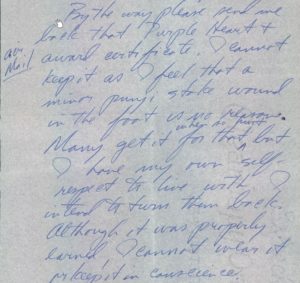 By the way please send me
back that Purple Heart &
Air Mail
award certificate. I cannot
keep it as I feel that a
minor pungi stake wound
in the foot is no reason.
Many get it for that but
I have my own self-
respect to live with I
intend to turn them back.
Although it was properly
earned I cannot wear it
or keep it in conscience.